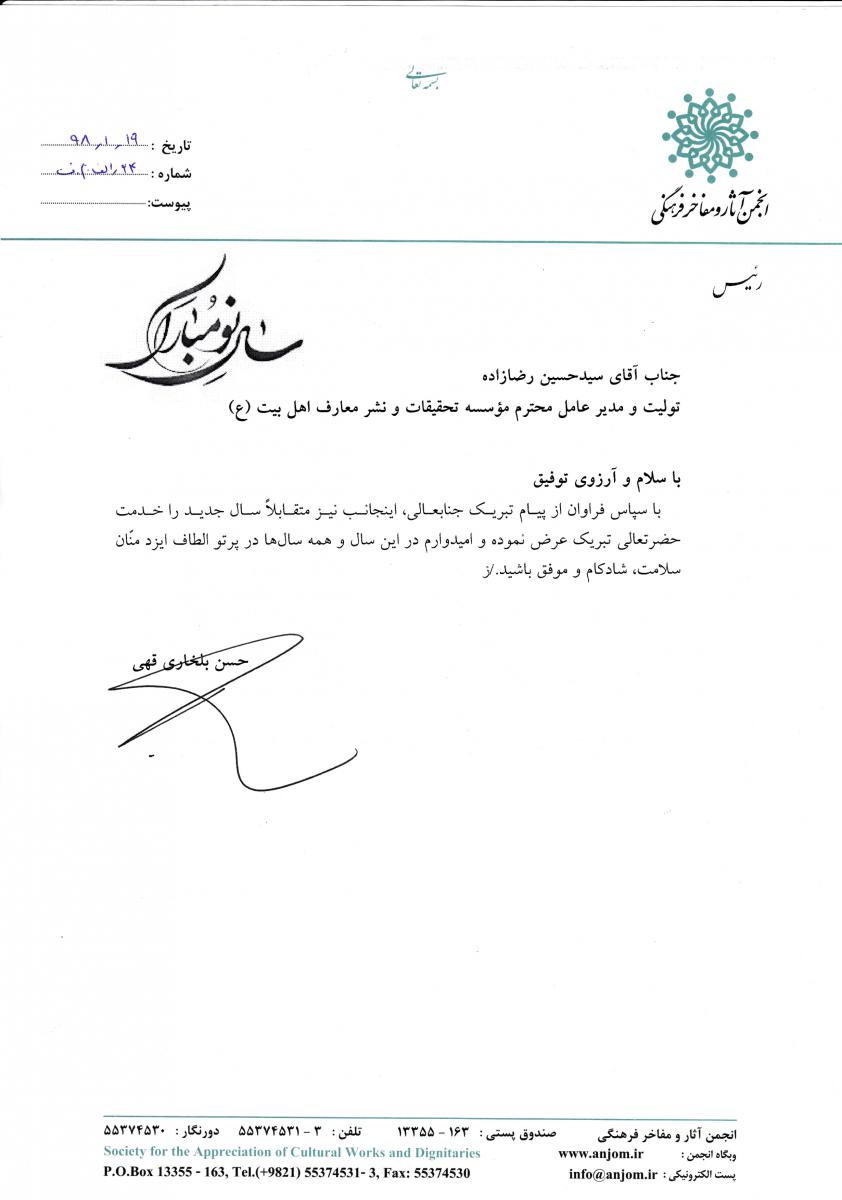 بسمه تعالی
انجمن آثار و مفاخر فرهنگی
تاریخ : ۹۸٫۱٫۱۹
شماره :
پیوست:
رئیس
سال نو مُبارک
جناب آقای سیدحسین رضازاده
تولیت و مدیر عامل محترم مؤسسه تحقیقات و نشر معارف اهل بیت (ع)
با سلام و آرزوی توفیق
با سپاس فراوان از پیام تبریک جنابعالی، اینجانب نیز متقابلاً سال جدید را خدمت
حضرتعالی تبریک عرض نموده و امیدوارم در این سال و همه سال‌ها در پرتو الطاف ایزد منّان
سلامت، شادکام و موفق باشید./ز
حسن بلخاری قهی
انجمن آثار و مفاخر فرهنگی صندوق پستی : ۱۶۳ - ۱۳۳۵۵ تلفن : ۳ - ۵۵۳۷۴۵۳۱ دورنگار : ۵۵۳۷۴۵۳۰
وبگاه انجمن : www.anjom.ir Society for the Appreciation of Cultural Works and Dignitaries
پست الکترونیکی : info@anjom.ir P.O.Box 13355 - 163, Tel.(+9821) 55374531- 3, Fax: 55374530